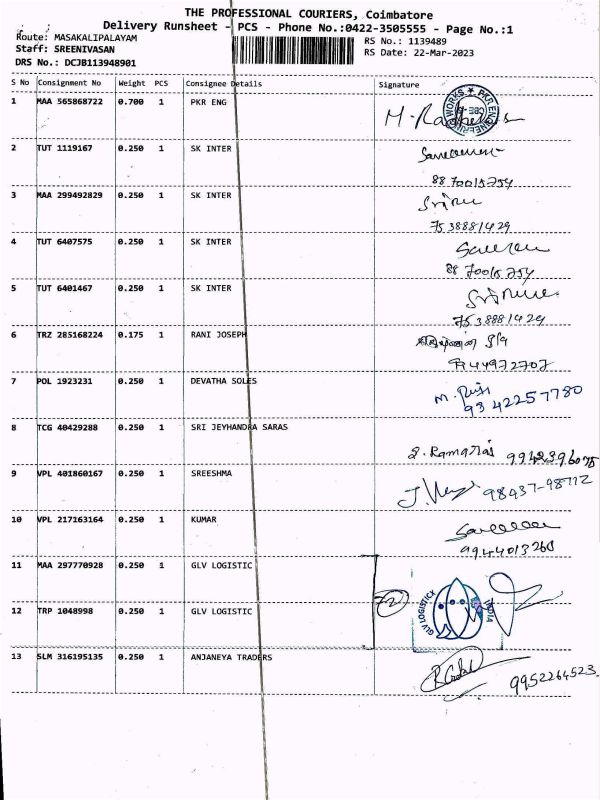 THE PROFESSIONAL COURIERS, Coimbatore
Delivery Runsheet - PCS - Phone No.:0422-3505555 - Page No.:1
Route: MASAKALIPALAYAM
RS No.: 1139489
Staff: SREENIVASAN
RS Date: 22-Mar-2023
DRS No.: DCJB113948901
S No Consignment No Weight PCS Consignee Details Signature
1 MAA 565868722 0.700 1 PKR ENG
PKR ENGINEERING WORKS CBE
2 TUT 1119167 0.250 1 SK INTER
8870015754
3 MAA 299492829 0.250 1 SK INTER
7538881429
4 TUT 6407575 0.250 1 SK INTER
8870015754
5 TUT 6401467 0.250 1 SK INTER
7538881429
6 TRZ 285168224 0.175 1 RANI JOSEPH
7 POL 1923231 0.250 1 DEVATHA SOLES
9342257780
8 TCG 40429288 0.250 1 SRI JEYHANDRA SARAS
S. Ramaraj 9942396075
9 VPL 401860167 0.250 1 SREESHMA
98437-98772
10 VPL 217163164 0.250 1 KUMAR
9944013260
11 MAA 297770928 0.250 1 GLV LOGISTIC
2
GLV LOGISTICX INDIA
12 TRP 1048998 0.250 1 GLV LOGISTIC
13 SLM 316195135 0.250 1 ANJANEYA TRADERS
9952264523